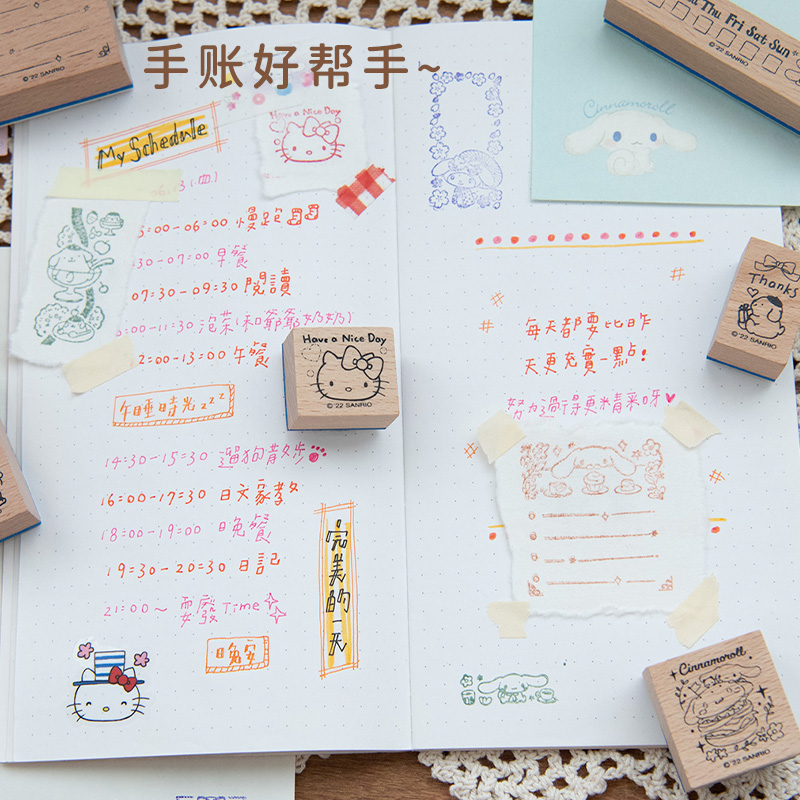 手账好帮手~
Thu Fri Sat Sun
©'22 SANRIO
©'22 SANRIO
My Schedule
Have a Nice Day
Cinnamoroll
06:00 慢跑
30-07:00 早餐
07:30-09:30 閱讀
00-11:30 泡茶(和爺爺奶奶)
2:00-13:00 午餐
午睡時光zzz
14:30-15:30 遛狗散步
16:00-17:30 日文家教
18:00-19:00 晚餐
19:30-20:30 日記
21:00~ 耍廢Time
晚安
完美的一天
Have a Nice Day
©'22 SANRIO
每天都要比昨
天更充實一點!
努力過得更精采呀♥
Thanks
©'22 SANRIO
Cinnamoroll
©'22 SANRIO